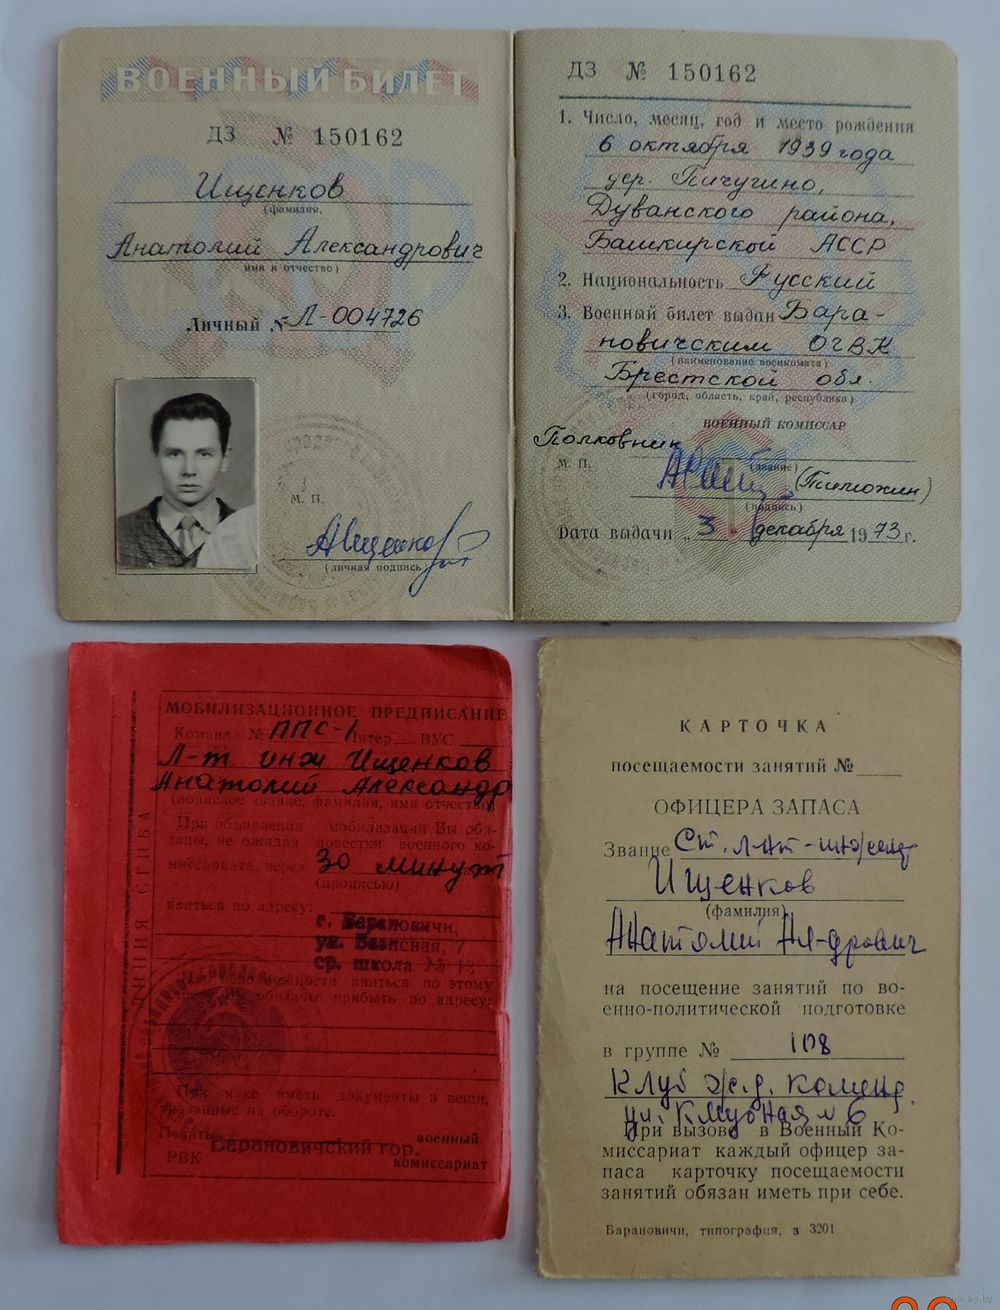 ВОЕННЫЙ БИЛЕТ
ДЗ № 150162
Ищенков
(фамилия,
Анатолий Александрович
имя и отчество)
Личный № Л-004726
М. П.
(личная подпись)
ДЗ № 150162
1. Число, месяц, год и место рождения
6 октября 1939 года
дер. Пичугино,
Дуванского района,
Башкирской АССР
2. Национальность Русский
3. Военный билет выдан Бара-
новичским ОГВК
(наименование военкомата)
Брестской обл.
(город, область, край, республика)
ВОЕННЫЙ КОМИССАР
Полковник
М. П. (звание)
(Тимохин)
(подпись)
Дата выдачи „3" декабря 1973 г.
МОБИЛИЗАЦИОННОЕ ПРЕДПИСАНИЕ
Команда № ППС-1 Литер ВУС
Л-т инж Ищенков
Анатолий Александр
(воинское звание, фамилия, имя отчество)
При объявлении мобилизации Вы обя-
заны, не ожидая повестки военного ко-
миссариата, через 30 минут
(прописью)
явиться по адресу:
г. Барановичи,
ср. школа №
При невозможности явиться по этому
обязаны прибыть по адресу:
При явке иметь документы и вещи,
указанные на обороте.
Печать Барановичский гор. военный
РВК комиссариат
ЛИНИЯ СГИБА
КАРТОЧКА
посещаемости занятий №
ОФИЦЕРА ЗАПАСА
Звание Ст. л-нт-инженер
Ищенков
(фамилия)
Анатолий Ал-дрович
на посещение занятий по во-
енно-политической подготовке
в группе № 108
Клуб ж.д.
При вызове в Военный Ко-
миссариат каждый офицер за-
паса карточку посещаемости
занятий обязан иметь при себе.
Барановичи, типография, з 3201
www.ay.by